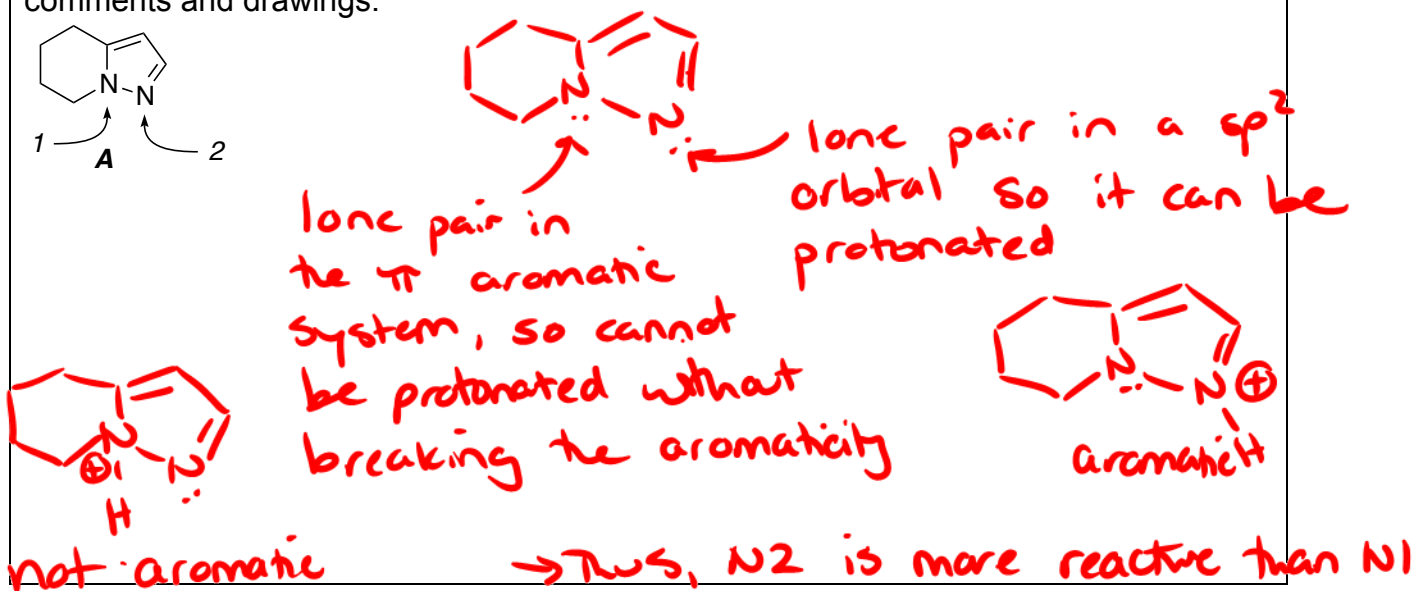 comments and drawings.
N
N
1
A
2
N
N
lone pair in a sp2
orbital so it can be
protonated
lone pair in
the π aromatic
system, so cannot
be protonated without
breaking the aromaticity
N
⊕
N
H
not aromatic
N
N ⊕
H
aromatic
→ Thus, N2 is more reactive than N1